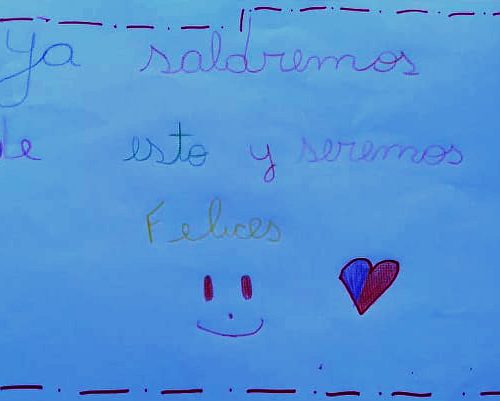 Ya saldremos
de esto y seremos
Felices